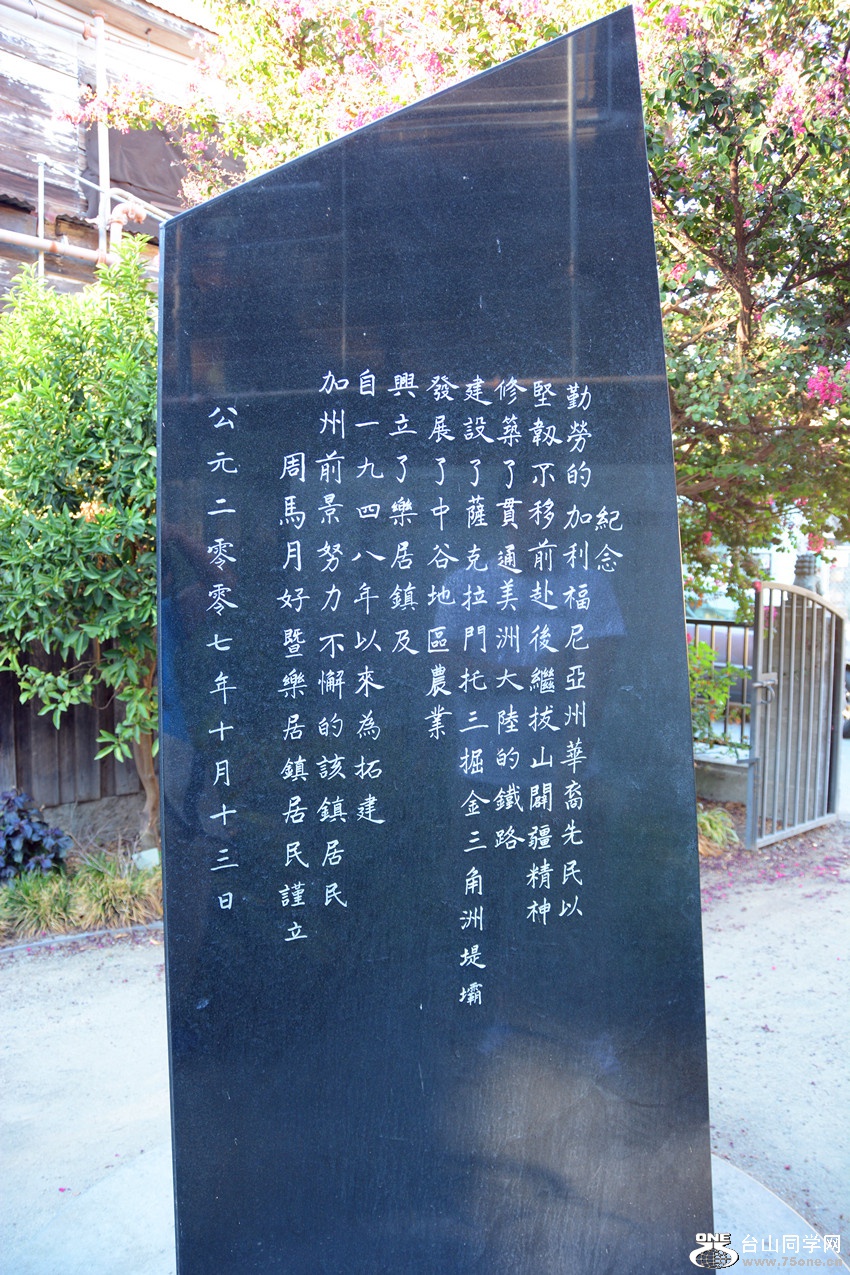 紀念
勤勞的加利福尼亞州華裔先民以
堅韌不移前赴後繼拔山闢疆精神
修築了貫通美洲大陸的鐵路
建設了薩克拉門托三掘金三角洲堤壩
發展了中谷地區農業
興立了樂居鎮及
自一九四八年以來為拓建
加州前景努力不懈的該鎮居民
周馬月好暨樂居鎮居民謹立
公元二零零七年十月十三日
ONE
台山同学网
www.75one.cn